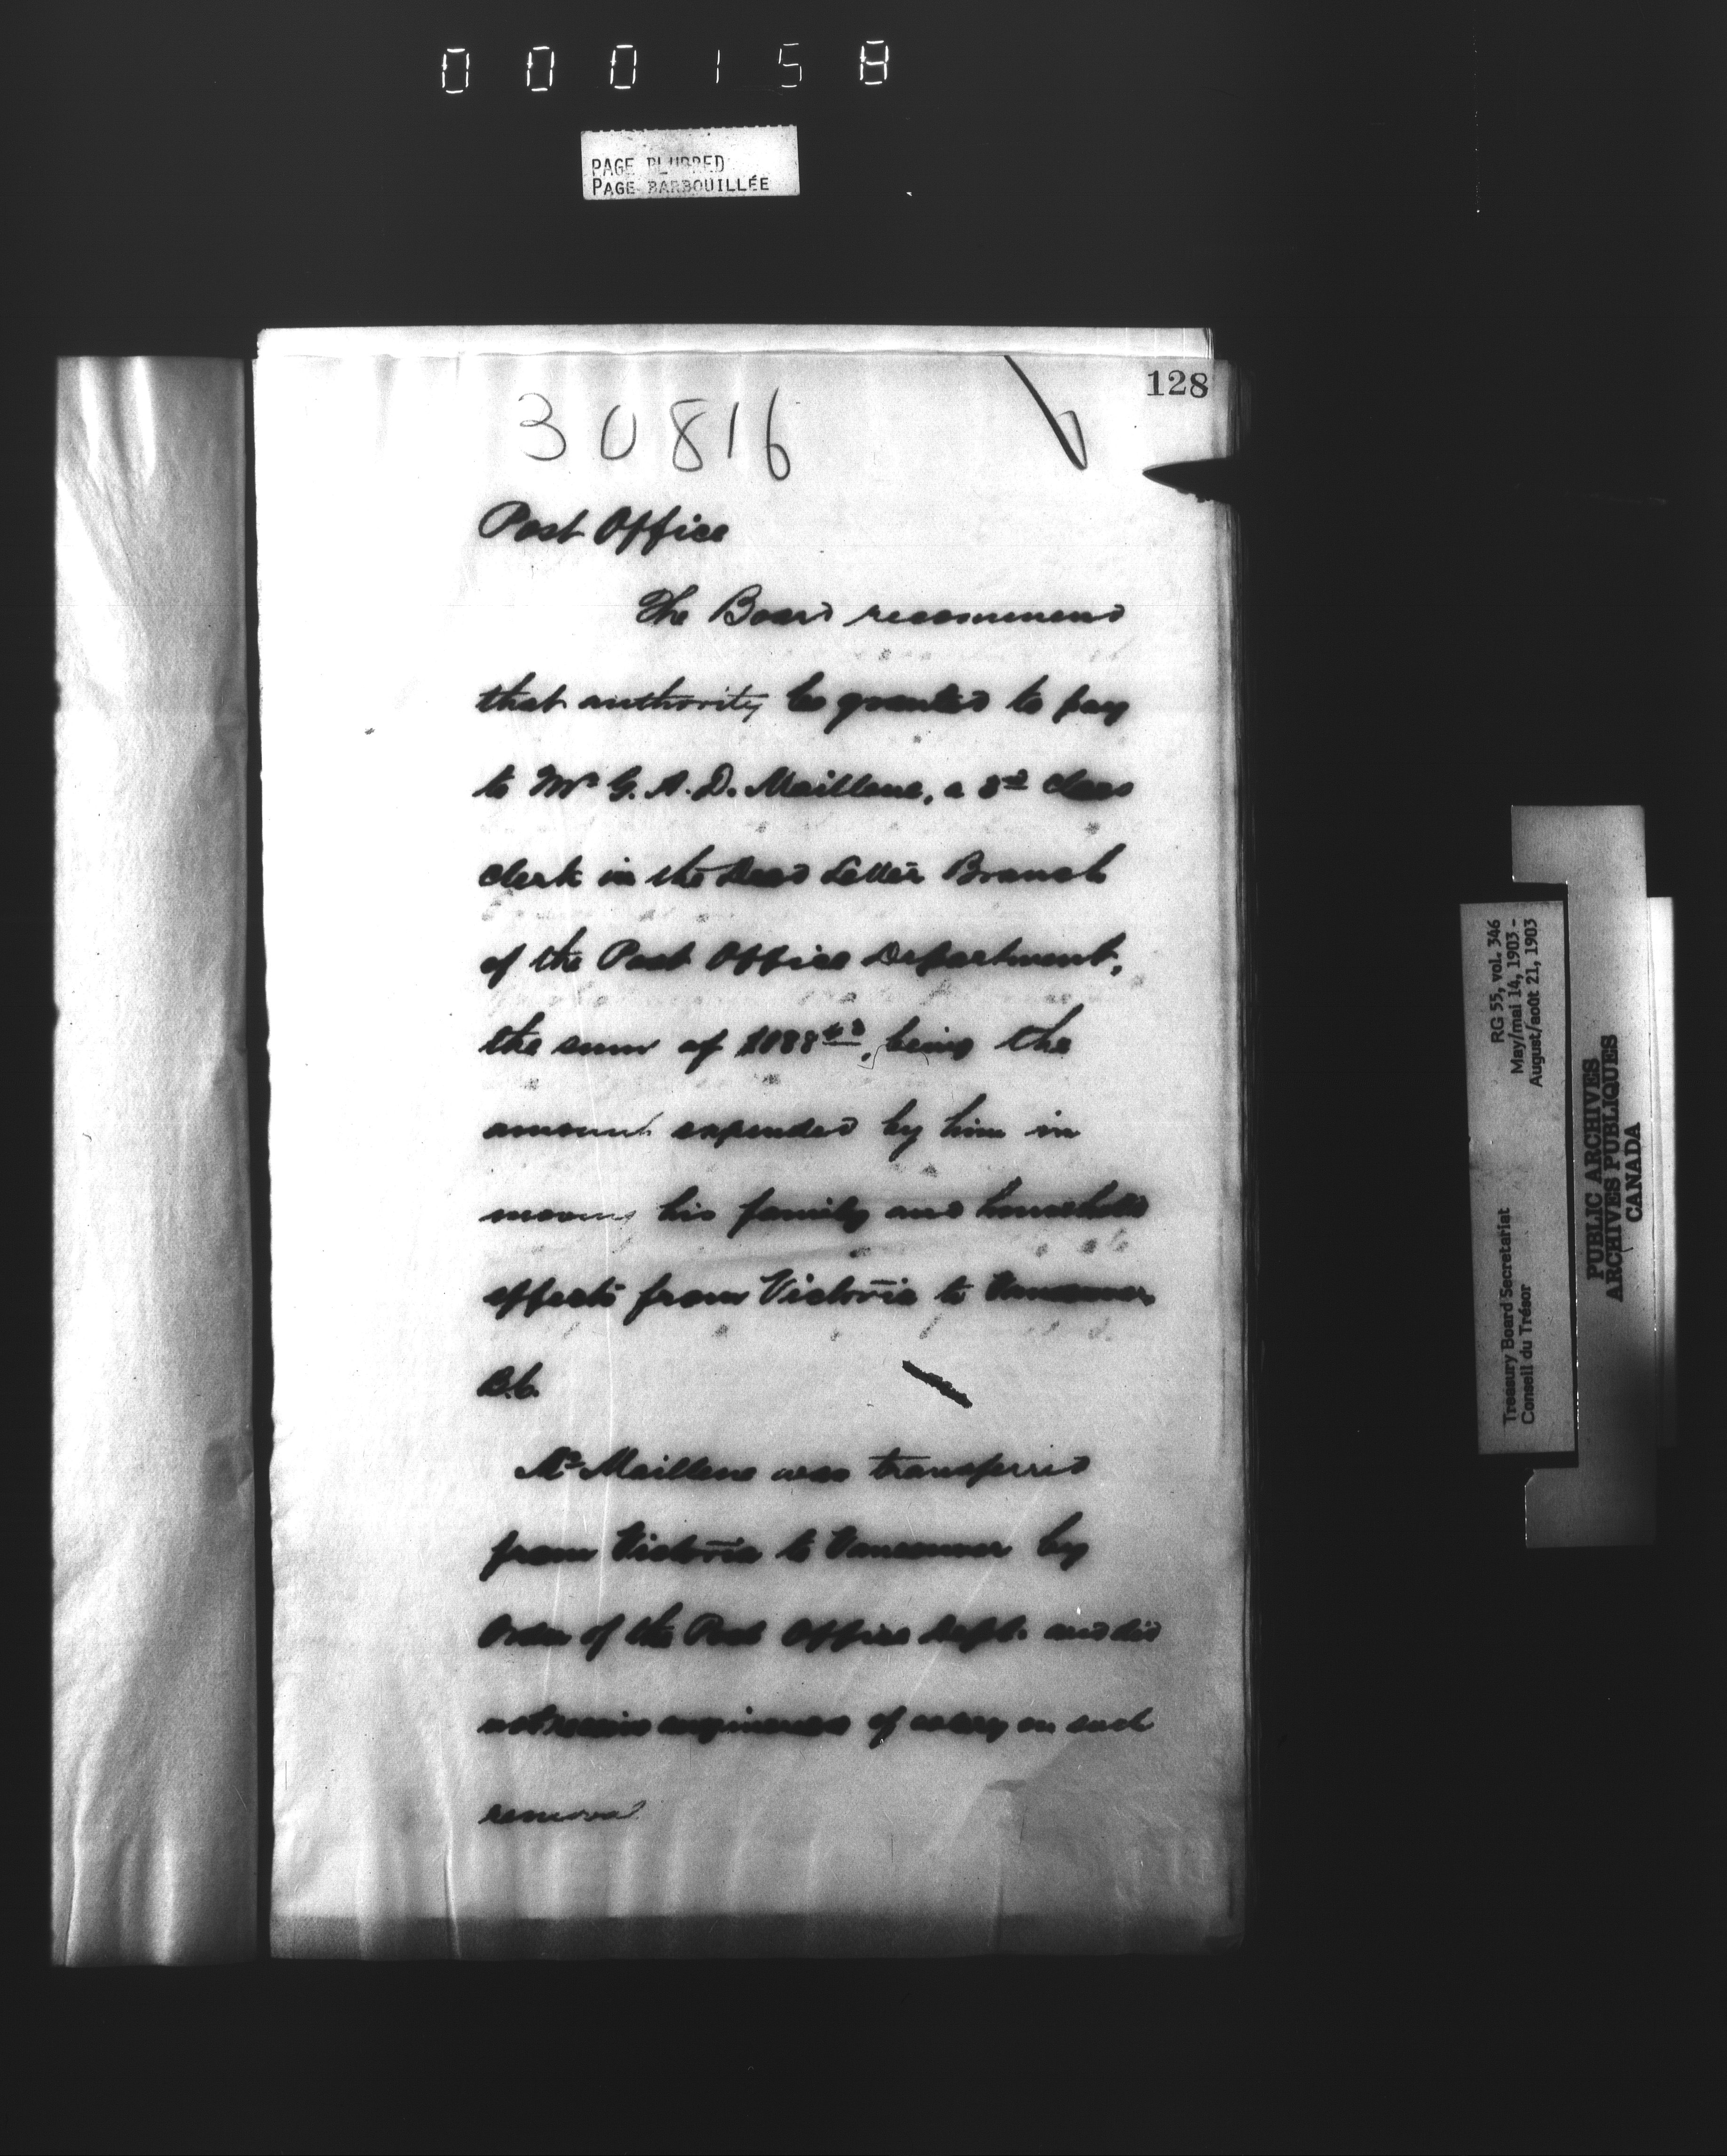 000158
PAGE BLURRED
PAGE BARBOUILLÉE
128
30816
Post Office
The Board recommend
that authority be granted to pay
to Mr G. A. D. Maillene, a 3rd class
clerk in the Dead Letter Branch
of the Post Office Department,
the sum of being the
amount expended by him in
moving his family and household
effects from Victoria to Vancouver
B.C.
Mr Maillene was transferred
from Victoria to Vancouver by
Order of the Post Office Dept. and did
not receive of salary on such
removal
RG 55, vol. 346
May/mai 14, 1903 -
August/août 21, 1903
Treasury Board Secretariat
Conseil du Trésor
PUBLIC ARCHIVES
ARCHIVES PUBLIQUES
CANADA